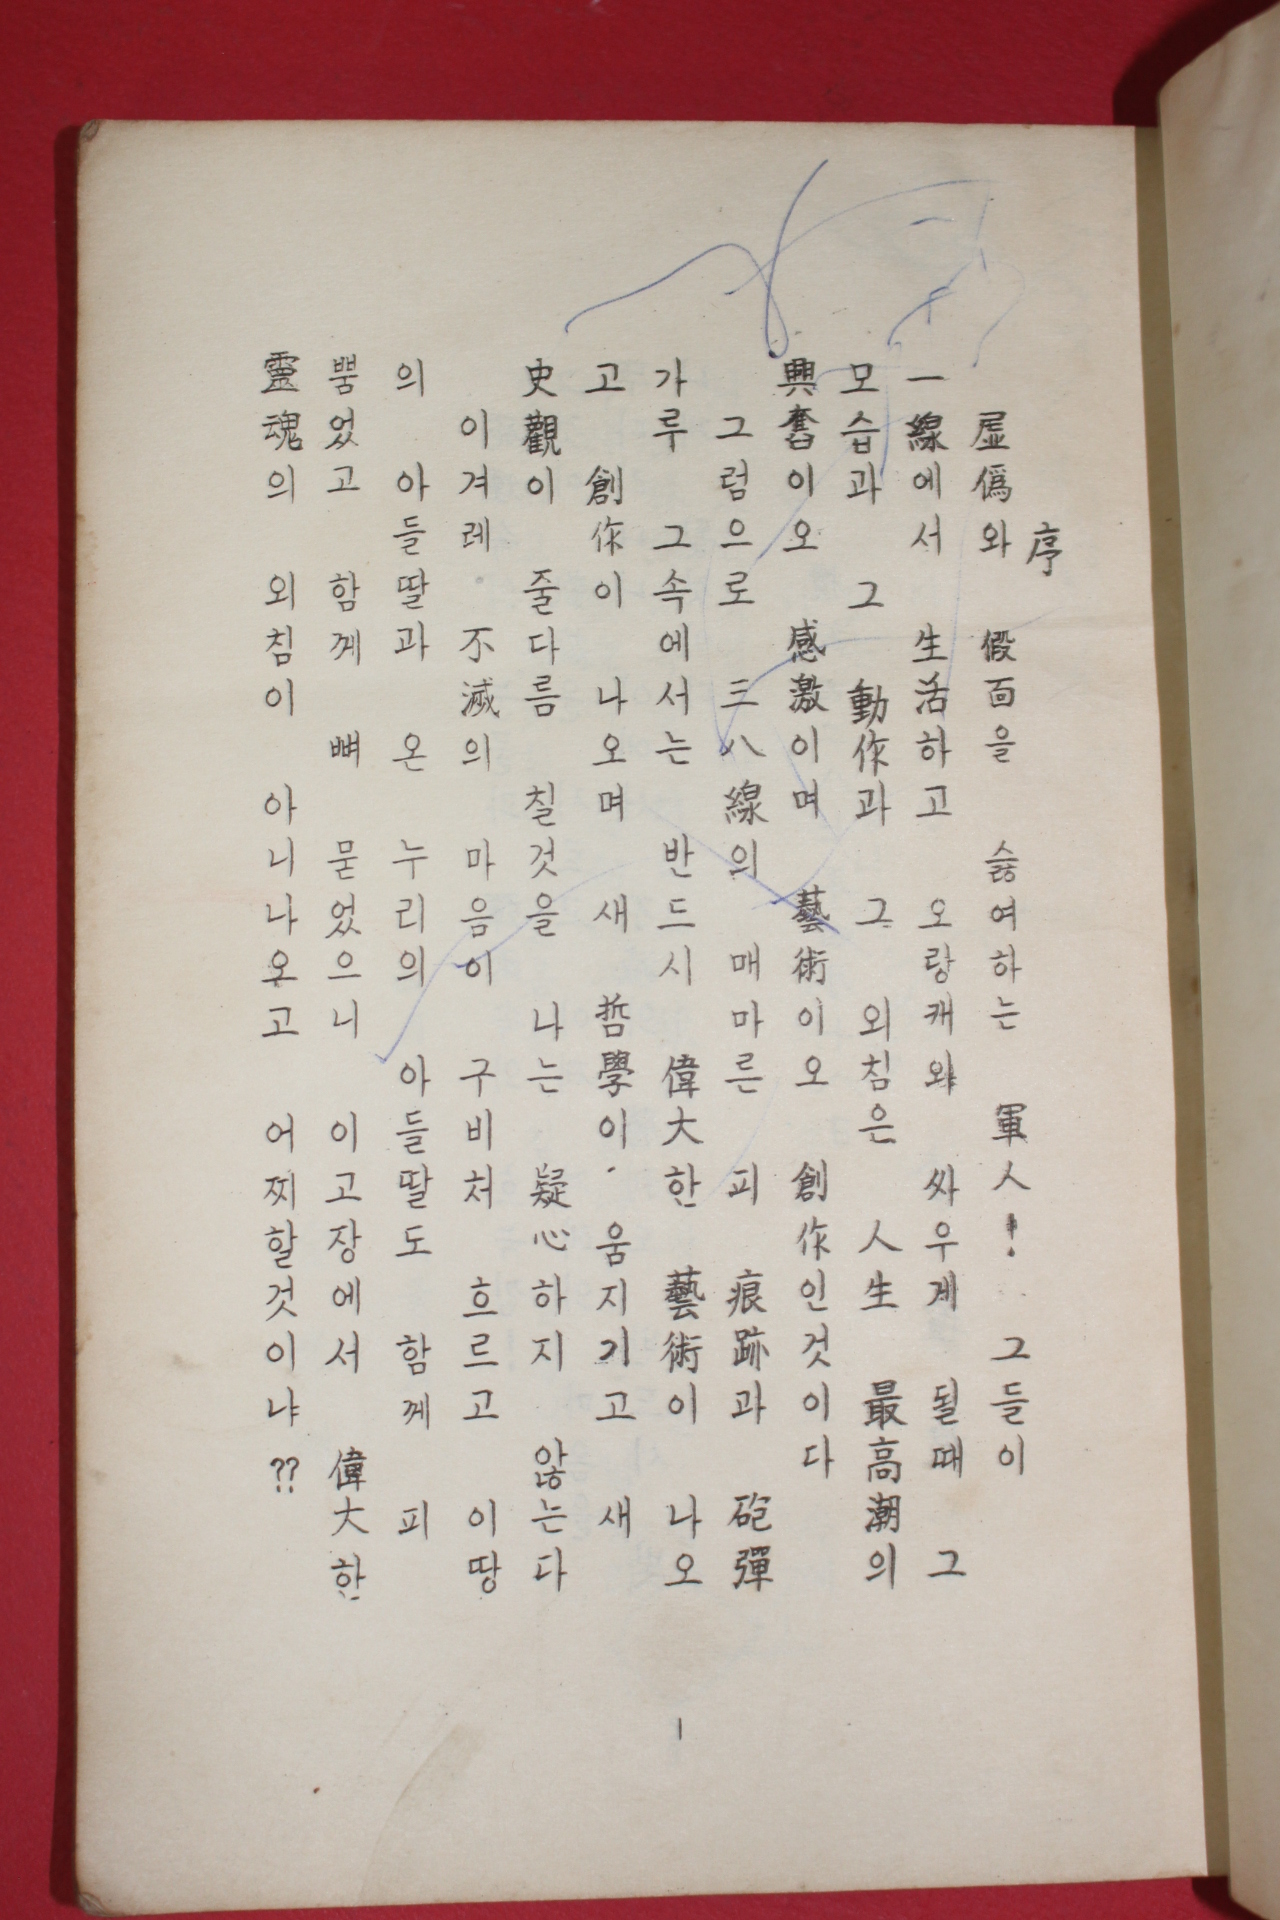 序
虛僞와 假面을 슳여하는 軍人! 그들이
一線에서 生活하고 오랑캐와 싸우게 될때 그
모습과 그 動作과 그 외침은 人生 最高潮의
興奮이오 感激이며 藝術이오 創作인것이다
그럼으로 三八線의 매마른 피 痕跡과 砲彈
가루 그속에서는 반드시 偉大한 藝術이 나오
고 創作이 나오며 새 哲學이 움지기고 새
史觀이 줄다름 칠것을 나는 疑心하지 않는다
이겨레 不滅의 마음이 구비처 흐르고 이땅
의 아들딸과 온 누리의 아들딸도 함께 피
뿜었고 함께 뼈 묻었으니 이고장에서 偉大한
靈魂의 외침이 아니나오고 어찌할것이냐??
1